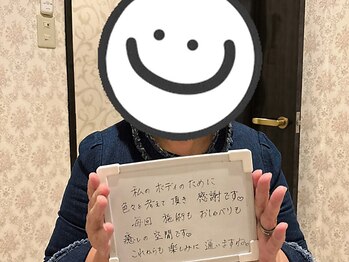 私の ボディの ために
色々 考えて 頂き 感謝です♡
毎回 施術も おしゃべりも
癒しの 空間です♡
これからも 楽しみに 通いますが♡